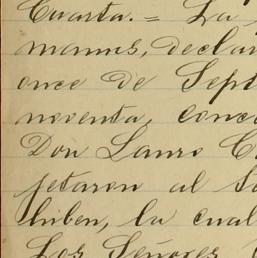 Cuarta.= La
manns, declar
once de Sept
noventa, conc
Don Lauro C
jetaron al Sa
hiben, la cual
Los Señores